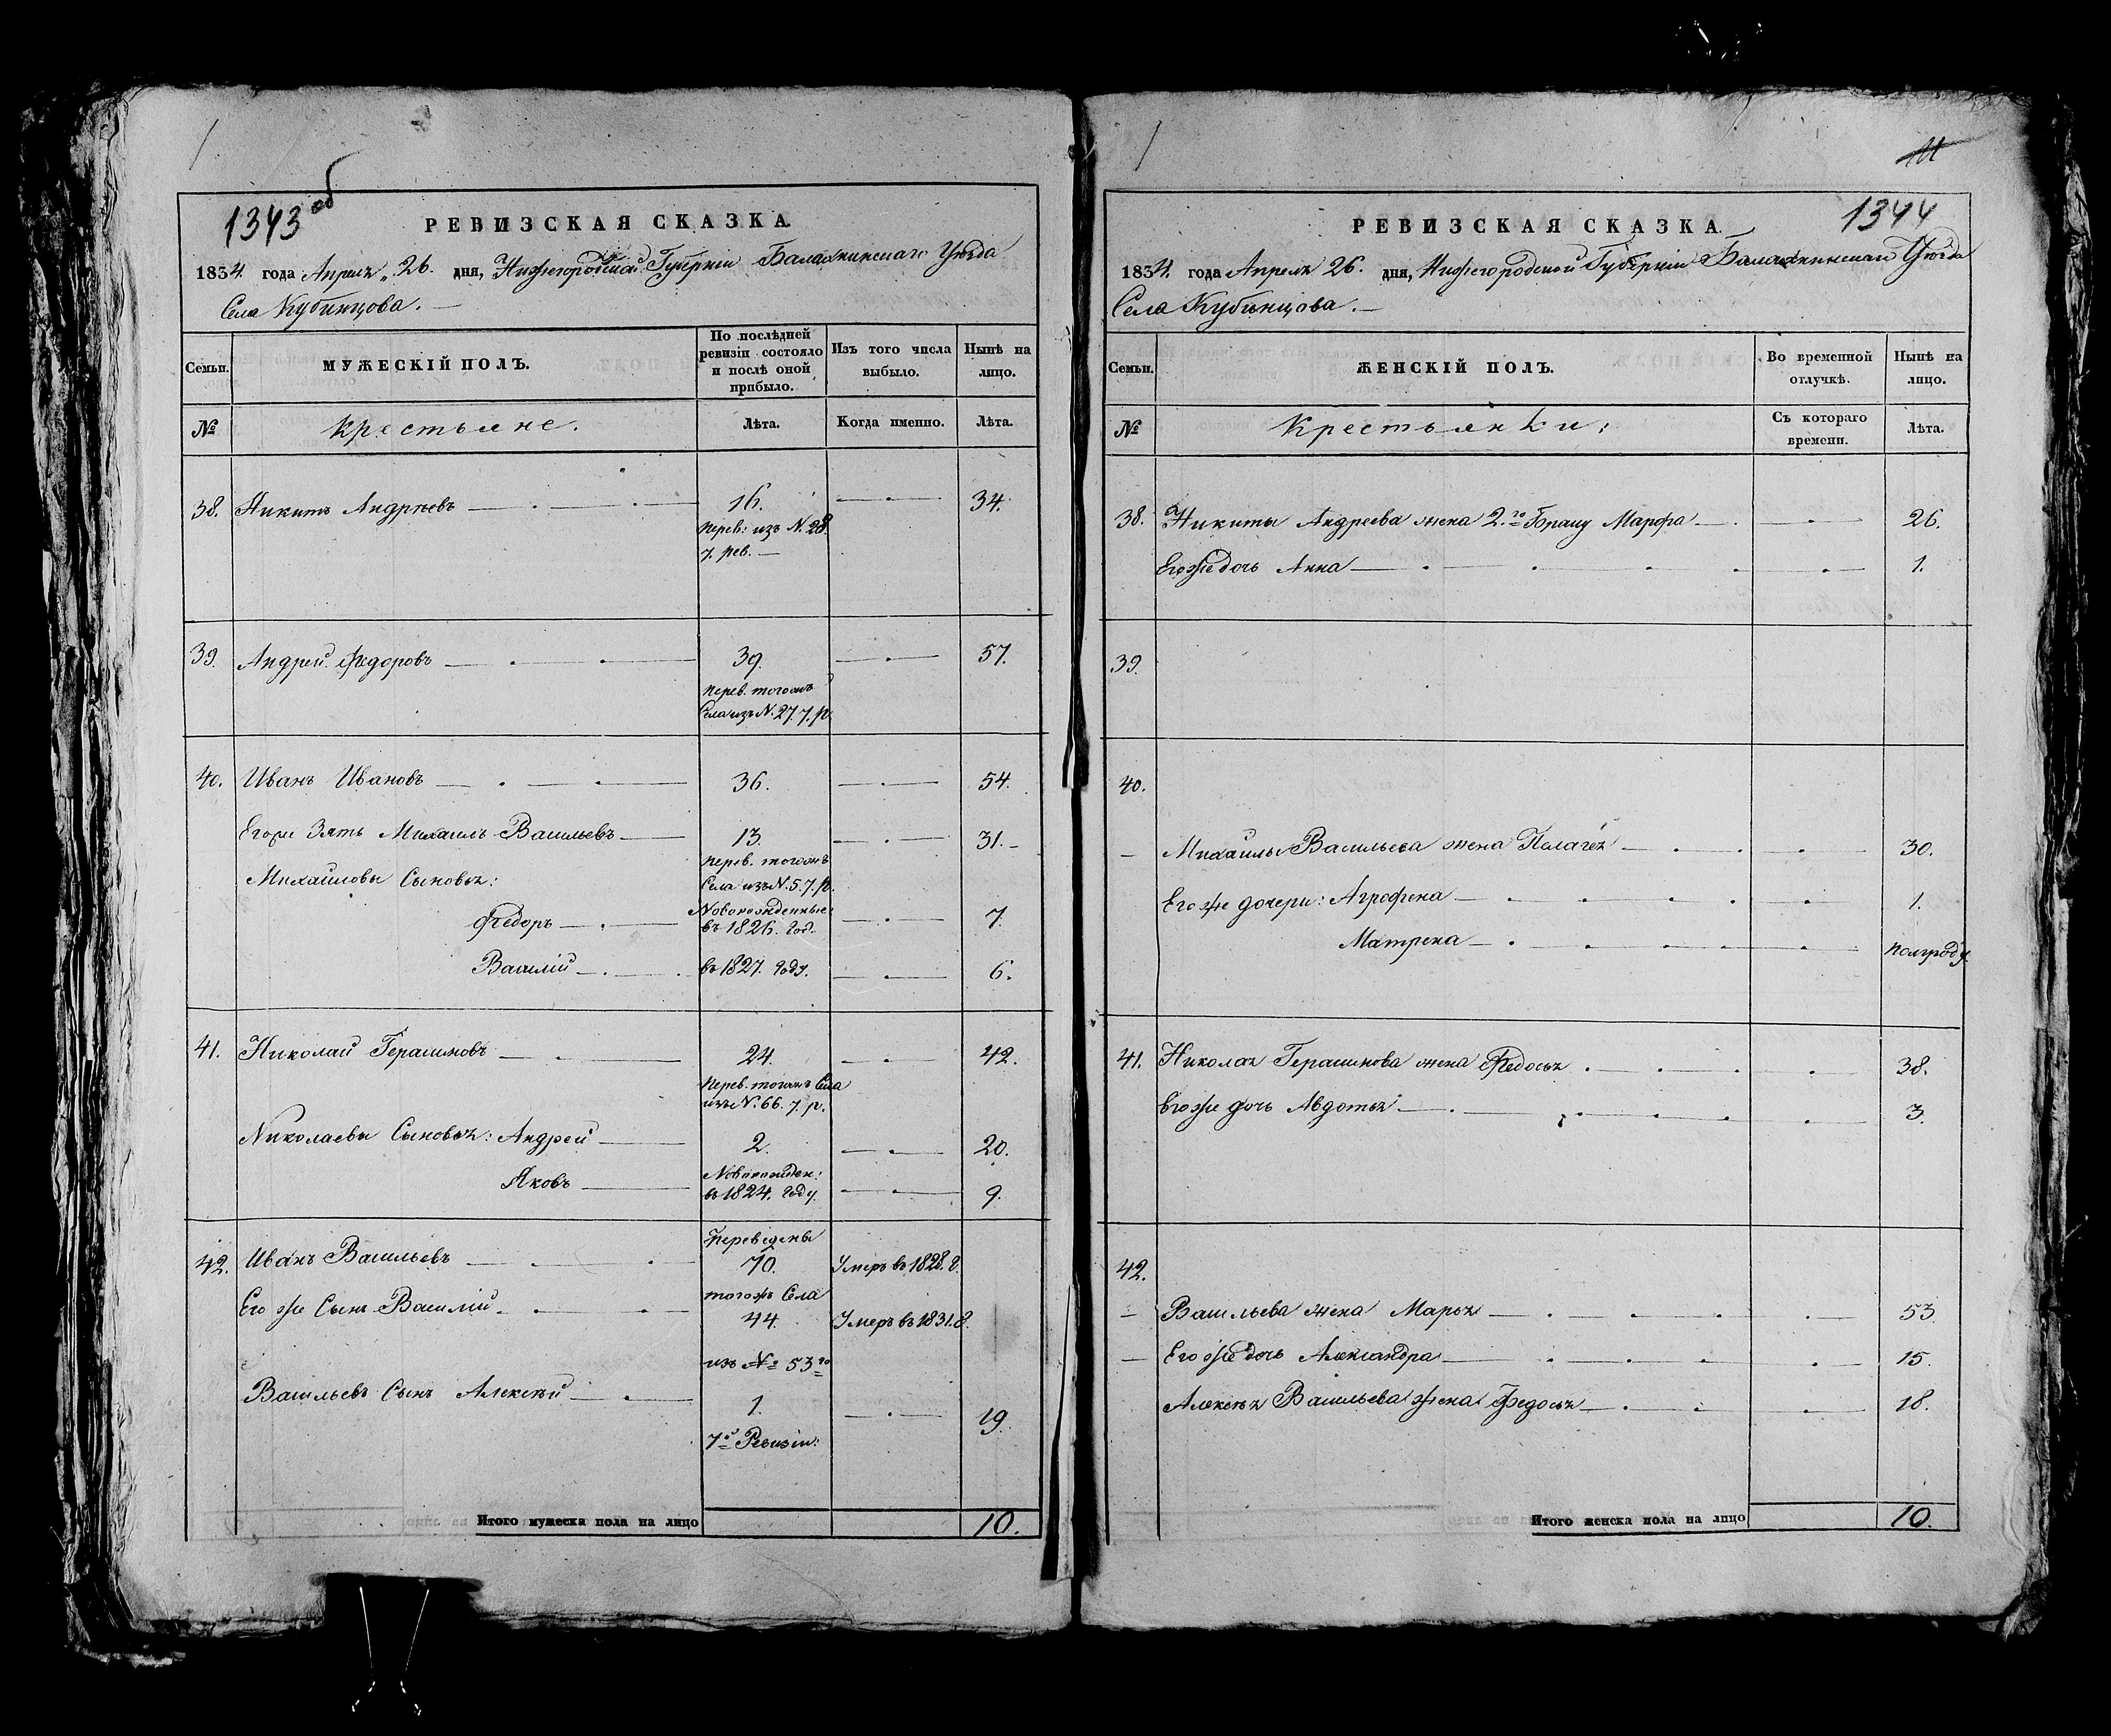 1343 об
РЕВИЗСКАЯ СКАЗКА.
1834. года Апреля 26. дня, Нижегородской Губернии Балахнинскаго Уезда
Села Кубинцова.
Семьи.
МУЖЕСКІЙ ПОЛЪ.
По послѣдней ревизіи состояло и послѣ оной прибыло.
Изъ того числа выбыло.
Нынѣ на лицо.
№
Крестьяне.
Лѣта.
Когда именно.
Лѣта.
38. Никитъ Андрѣевъ 16. 34.
Перев: изъ N. 28.
7. рев.
39. Андрей Федоровъ 39. 57.
Перев. тогожъ
Села изъ N. 27. 7. р.
40. Иванъ Ивановъ 36. 54.
Егоже Зять Михаилъ Васильевъ 13. 31.
Перев. тогожъ
Села изъ N. 5. 7. р.
Михаиловы Сыновья:
Новорожденные
Федоръ въ 1826. год. 7.
Василій въ 1827. году. 6.
41. Николай Герасимовъ 24. 42.
Перев. тогожъ Села
изъ N. 66. 7. р.
Николаевы Сыновья: Андрей 2. 20.
Новорожден:
Яковъ въ 1824. году. 9.
Переведены
42. Иванъ Васильевъ 70. Умеръ въ 1828. г.
тогожъ Села
Его же Сынъ Василій 44. Умеръ въ 1831. г.
изъ № 53го
Васильевъ Сынъ Алексѣй 1. 19.
7й Ревизіи:
Итого мужеска пола на лицо 10.
11
1344
РЕВИЗСКАЯ СКАЗКА.
1834. года Апреля 26. дня, Нижегородской Губерніи Балахнинскаго Уезда
Села Кубинцова.
Семьи.
ЖЕНСКІЙ ПОЛЪ.
Во временной отлучкѣ.
Нынѣ на лицо.
№
Крестьянки:
Съ котораго времени.
Лѣта.
38. Никиты Андреева жена 2.го браку Марфа 26.
Егоже дочь Анна 1.
39.
40.
Михаилы Васильева жена Пелагея 30.
Его же дочери: Агрофена 1.
Матрена полгоду.
41. Николая Герасимова жена Федосья 38.
Егоже дочь Авдотья 3.
42.
Васильева жена Марья 53.
Егоже дочь Александра 15.
Алексѣя Васильева жена Федосья 18.
Итого женска пола на лицо 10.